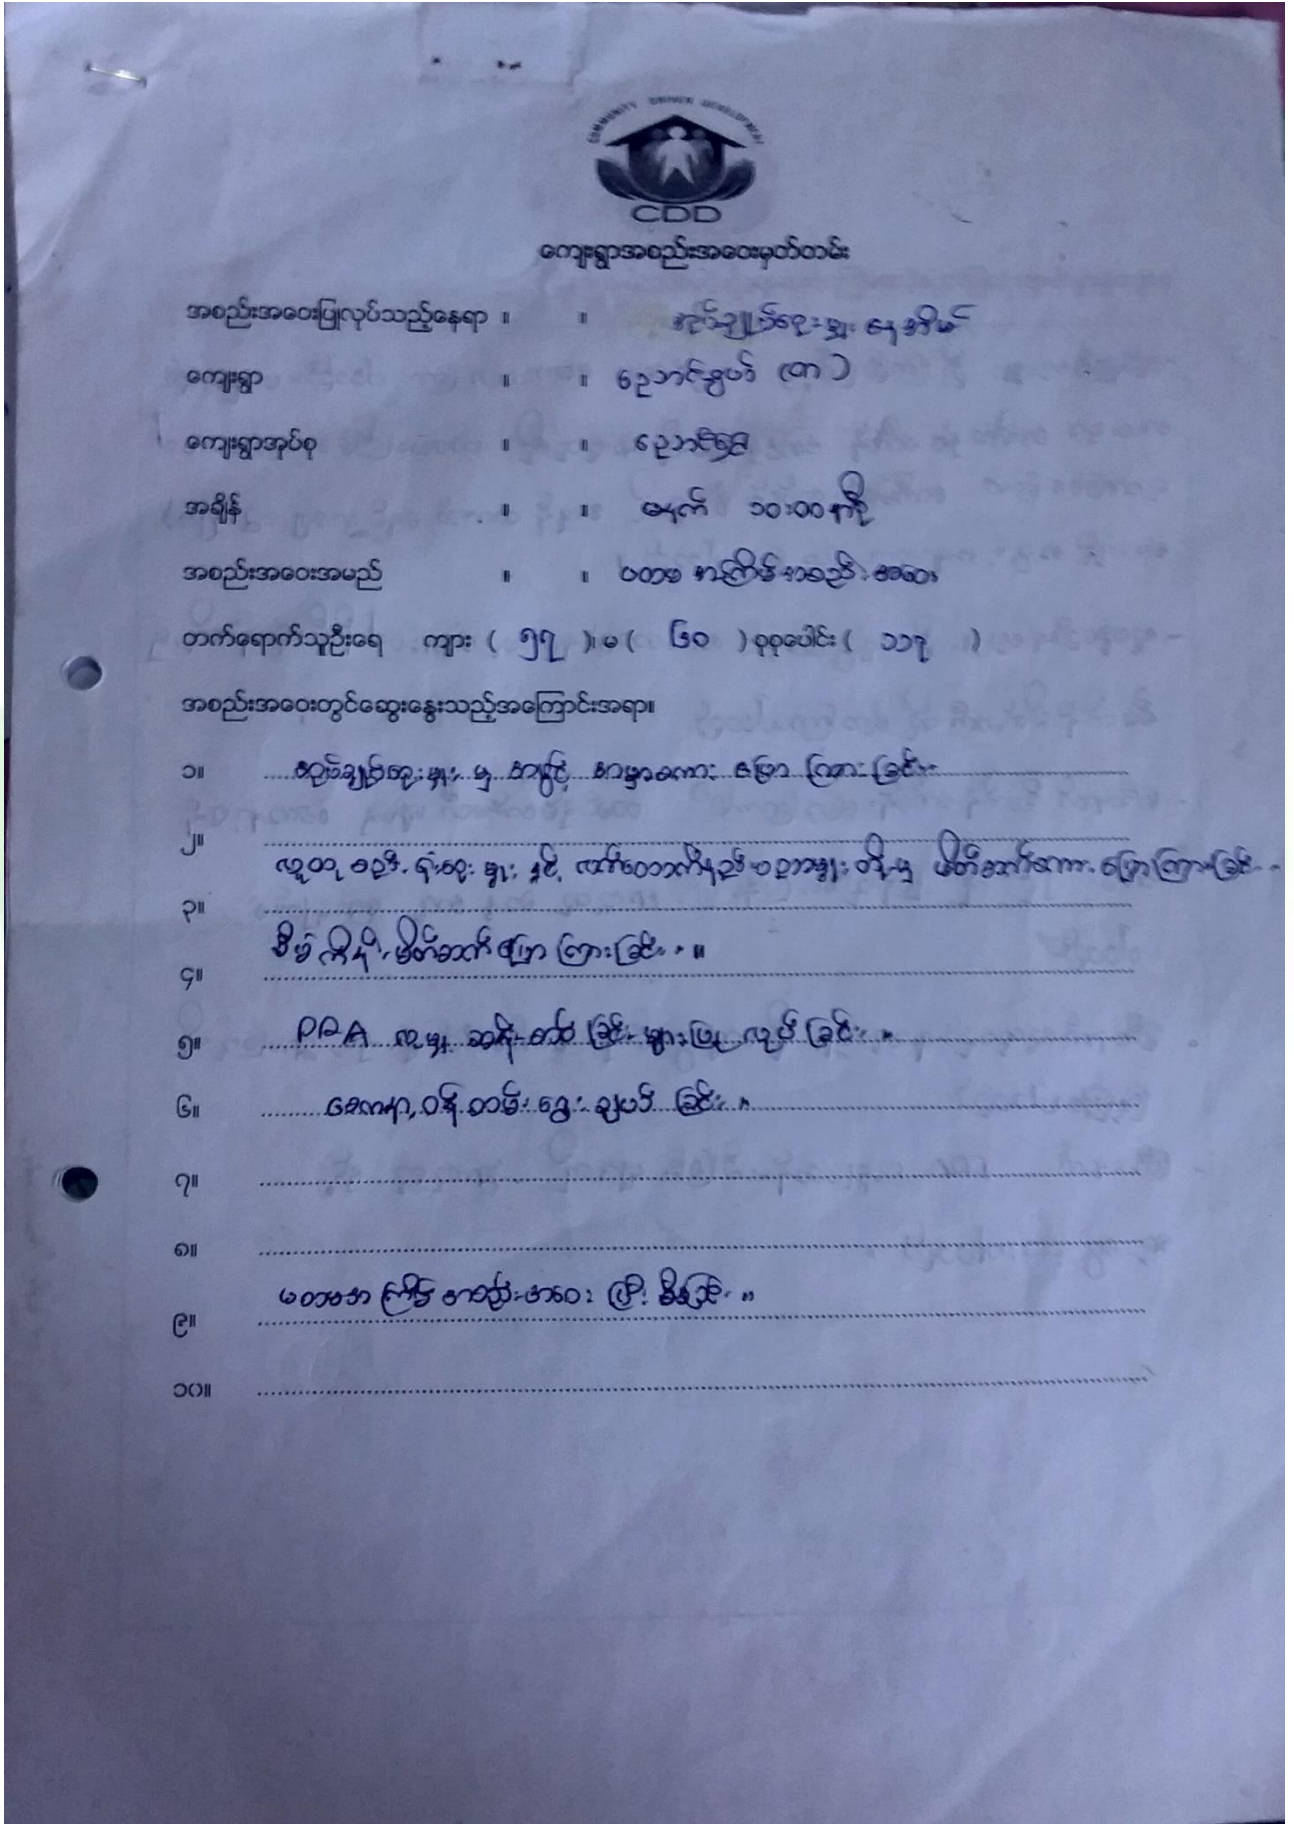 COMMUNITY DRIVEN DEVELOPMENT
CDD
ကျေးရွာအစည်းအဝေးမှတ်တမ်း
အစည်းအဝေးပြုလုပ်သည့်နေရာ ။ ။ အုပ်ချုပ်ရေးမှူး နေအိမ်
ကျေးရွာ ။ ။ ညောင်နွယ် (တ)
ကျေးရွာအုပ်စု ။ ။
အချိန် ။ ။ မနက် ၁၀:၀၀ နာရီ
အစည်းအဝေးအမည် ။ ။ ပထမ အကြိမ် အစည်းအဝေး
တက်ရောက်သူဦးရေ ကျား ( ၅၇ )၊ မ ( ၆၀ ) စုစုပေါင်း ( ၁၁၇ )
အစည်းအဝေးတွင်ဆွေးနွေးသည့်အကြောင်းအရာ။
၁။ အုပ်ချုပ်ရေးမှူး မှ အဖွင့် အမှာစကား ပြောကြားခြင်း။
၂။
လူထု စည်းရုံးရေးမှူး နှင့် တို့မှ မိတ်ဆက်စကား ပြောကြားခြင်း
၃။
စီမံကိန်း မိတ်ဆက် ပြောကြားခြင်း။
၄။
၅။ PRA လူမှု ဆန်းစစ်ခြင်းများ ပြုလုပ်ခြင်း။
၆။ စေတနာ့ဝန်ထမ်း ရွေးချယ်ခြင်း။
၇။
၈။
ပထမအကြိမ် အစည်းအဝေး ပြီးစီးခြင်း။
၉။
၁၀။